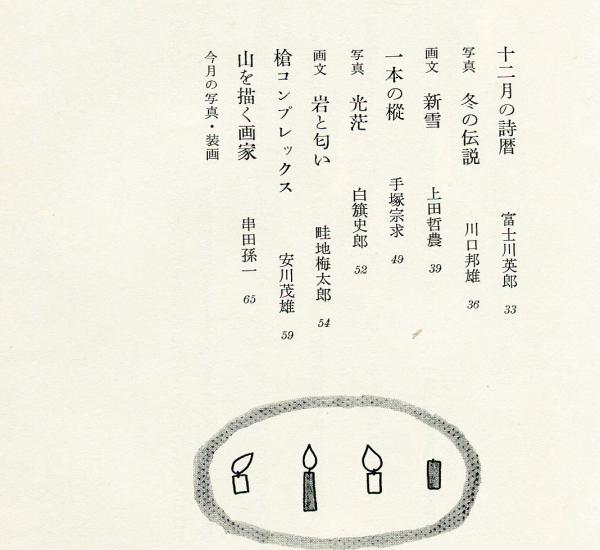 十二月の詩暦 富士川英郎 33
写真 冬の伝説 川口邦雄 36
画文 新雪 上田哲農 39
一本の樅 手塚宗求 49
写真 光茫 白籏史郎 52
画文 岩と匂い 畦地梅太郎 54
槍コンプレックス 安川茂雄 59
山を描く画家 串田孫一 65
今月の写真・装画